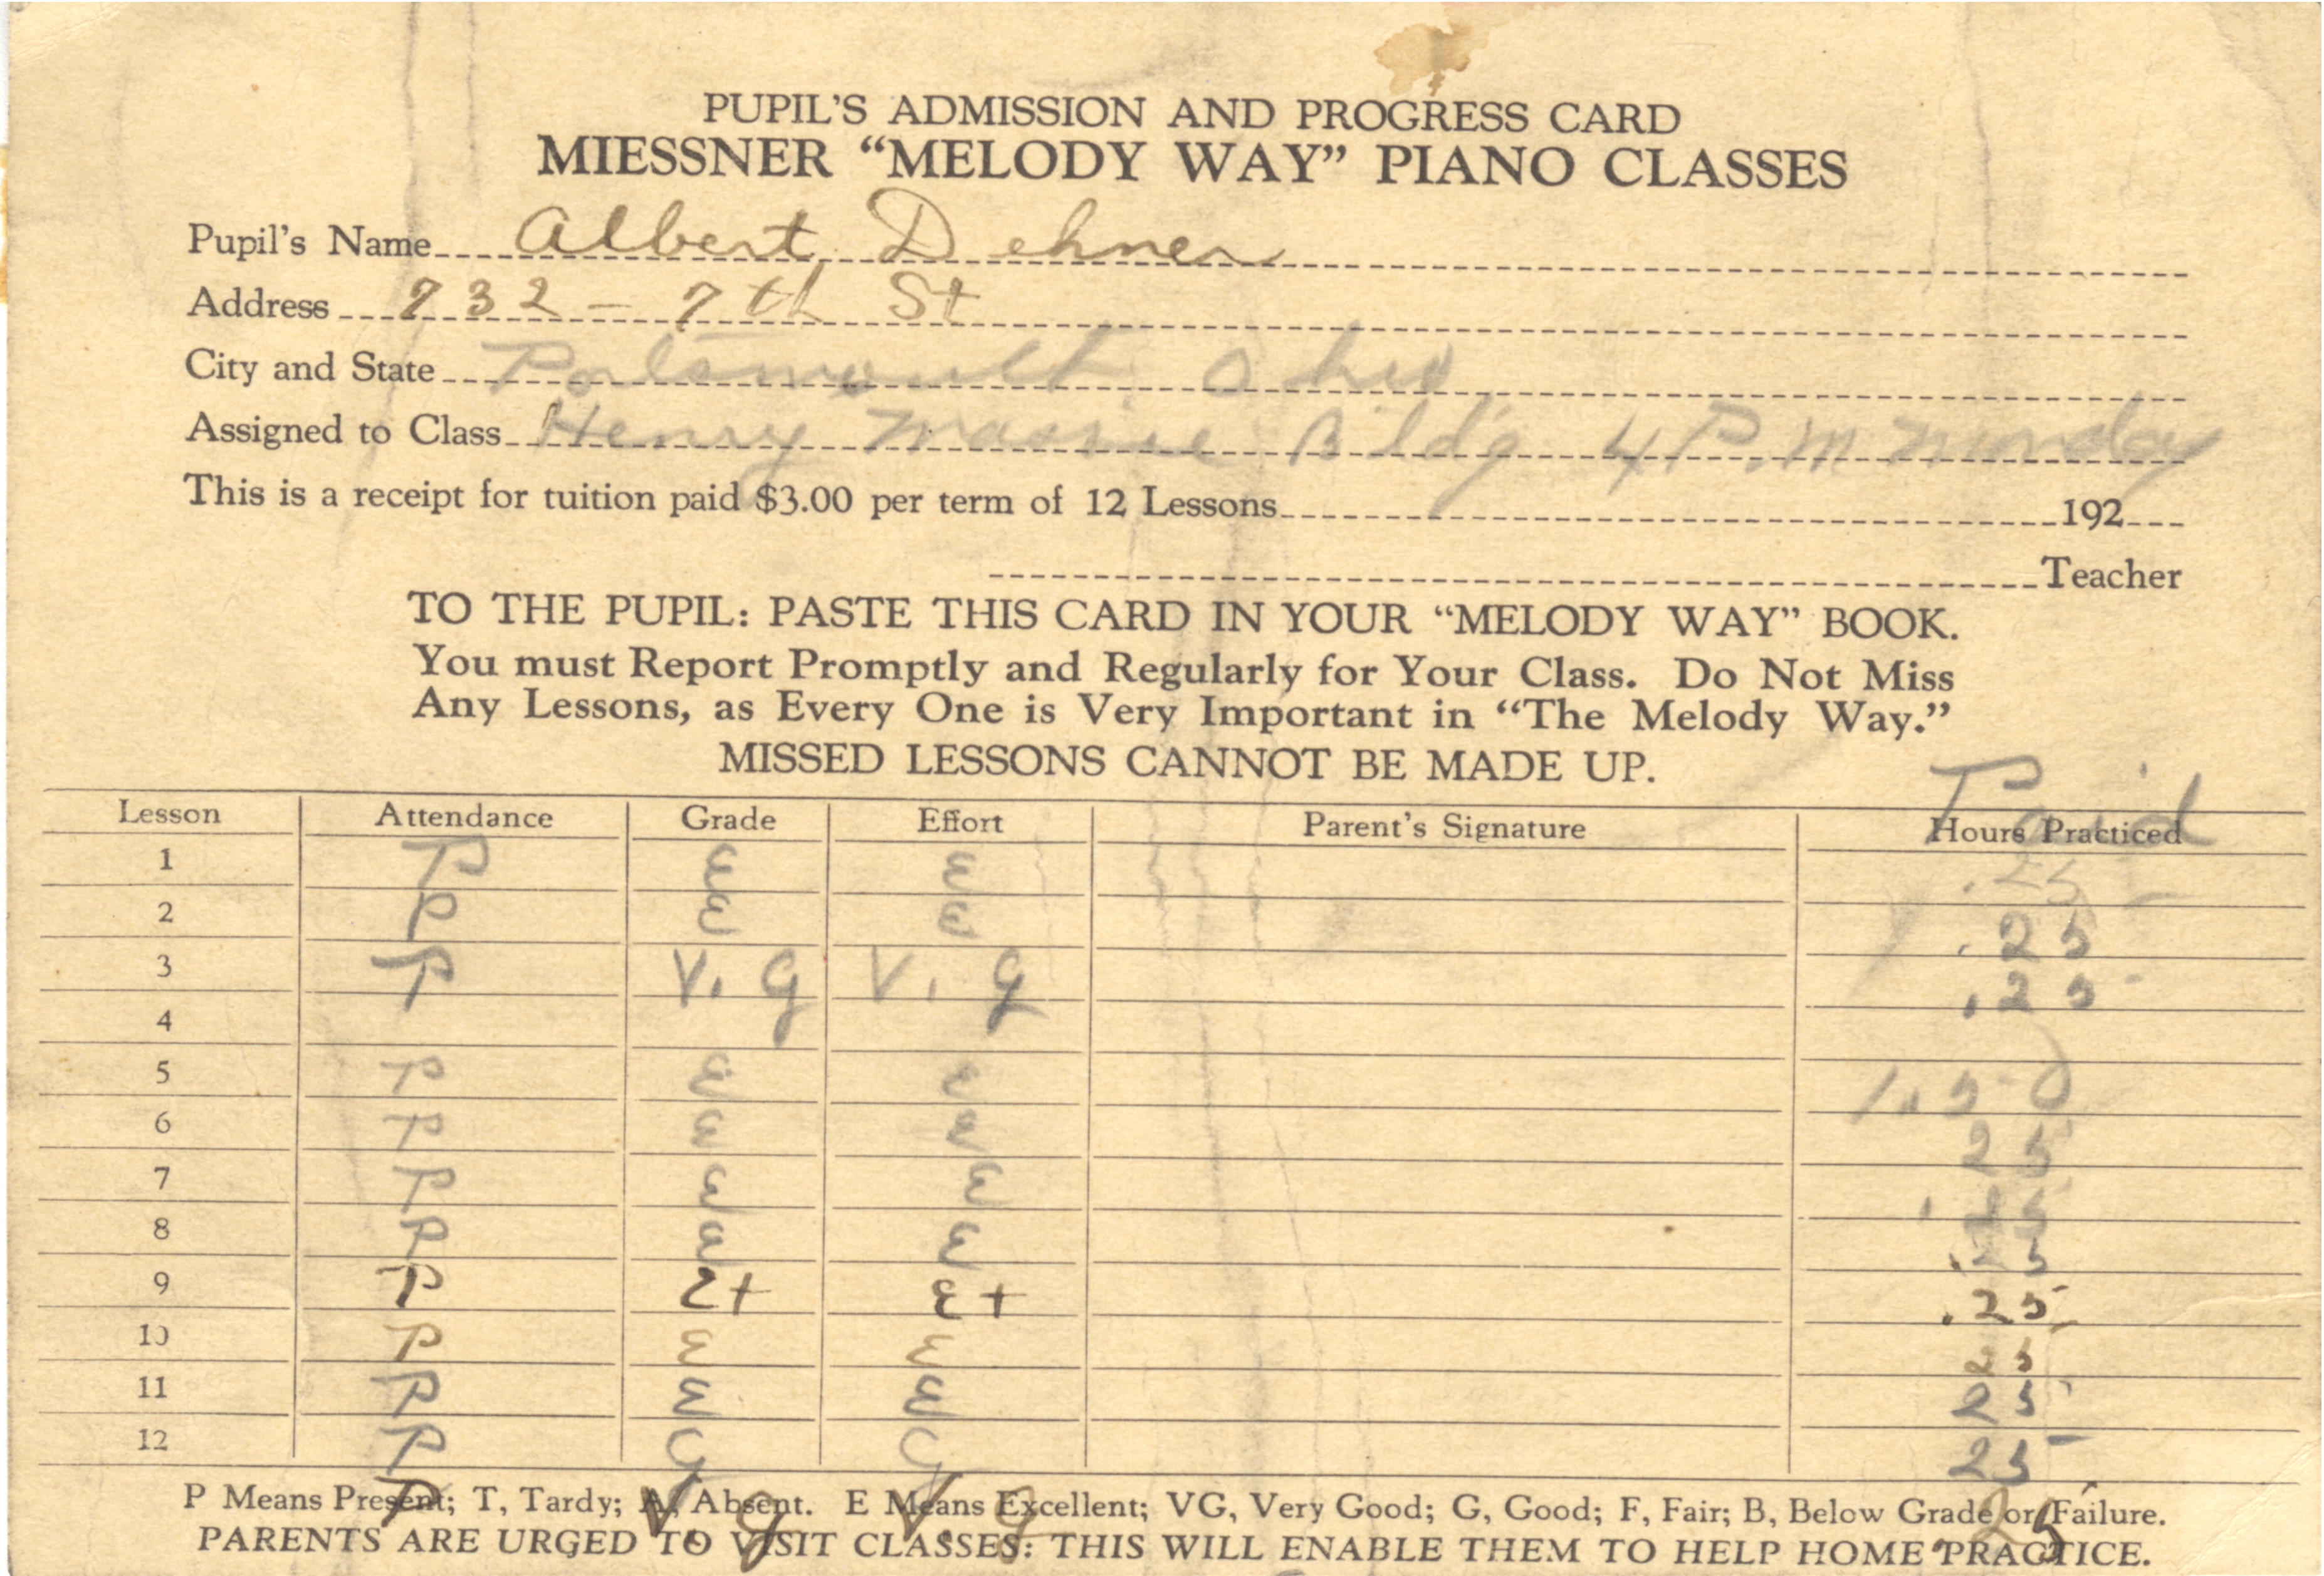 PUPIL'S ADMISSION AND PROGRESS CARD
MIESSNER "MELODY WAY" PIANO CLASSES
Pupil's Name Albert Dehner
Address 732 - 7th St
City and State Portsmouth Ohio
Assigned to Class Henry Massie Bldg 4 P.M Monday
This is a receipt for tuition paid $3.00 per term of 12 Lessons 192
Teacher
TO THE PUPIL: PASTE THIS CARD IN YOUR "MELODY WAY" BOOK.
You must Report Promptly and Regularly for Your Class. Do Not Miss
Any Lessons, as Every One is Very Important in "The Melody Way."
MISSED LESSONS CANNOT BE MADE UP.
Paid
Lesson Attendance Grade Effort Parent's Signature Hours Practiced
1 P E E .25
2 P E E .25
3 P V. G V. G .25
4
5 P E E 1.50
6 P E E 25
7 P E E .25
8 P E E .25
9 P E+ E+ .25
10 P E E 25
11 P E E 25
12 P G G 25
P V. G V. G .25
P Means Present; T, Tardy; A, Absent. E Means Excellent; VG, Very Good; G, Good; F, Fair; B, Below Grade or Failure.
PARENTS ARE URGED TO VISIT CLASSES: THIS WILL ENABLE THEM TO HELP HOME PRACTICE.